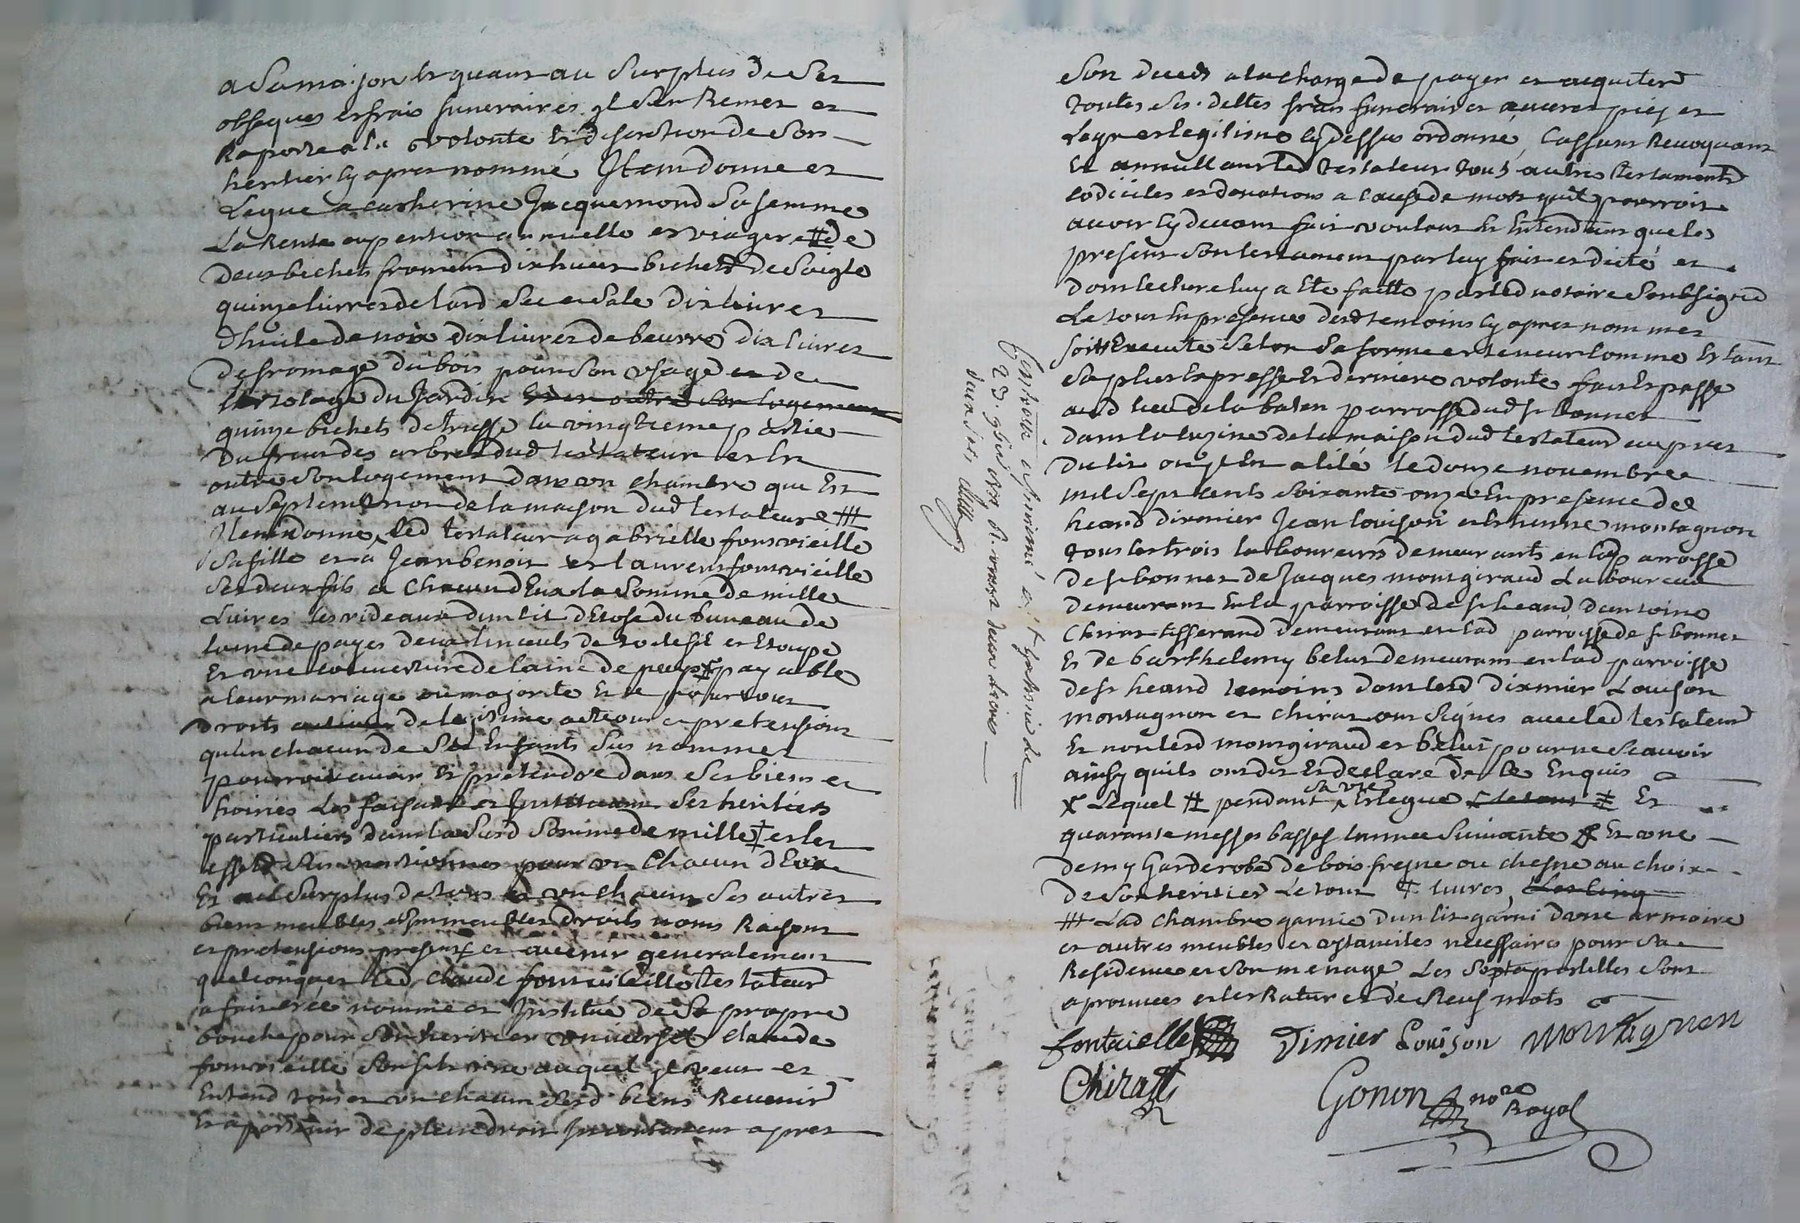 a sa maison Et quant au surplus de ses
obseques et frais funeraires il s'en Remet et
Raporte a la volonté Et discretion de son
heritier cy apres nommé Item donne et
Legue a catherine Jacquemond sa femme
La Rente ou pention annuelle et viagere # de
deux bichets froment dix huit bichets de seigle
quinze livres de lard sec et salé dix livres
d'huile de noix dix livres de beurre dix livres
de fromage du bois pour son usage et de
l'ortolage du Jardin Et en outre son logement
quinze bichets de truffe la vingtieme partie
du fruit des arbres dud testateur et En
outre son logement dans un chambre qui Est
au septentrion de la maison dud testateur #
Item donne led testateur a gabrielle fontvieille
sa fille et a Jean benoit et laurent fontvieille
ses deux fils a Chacun d'Eux la somme de mille
Livres les rideaux d'un lit d'Etofe du bureau de
laine de payes deux linceuls de toile et Etoupe
Et une couverture de laine de pays payable
a leur mariage ou majorité Et ce pour tous
droits de legitime actions et pretensions
qu'un chacun de ses Enfants sus nommes
pourroit avoir Et pretendre dans ses biens et
hoiries Les faisant et Instituant ses heritiers
particuliers dans lad somme de mille ‡ et les
effets sus mentionnes pour un chacun d'Eux
Et au surplus de tous et un chacun ses autres
biens meubles et immeubles droits noms Raisons
et pretensions presents et avenir generalement
quelconques led claude fontvieille testateur
a fait cree nommé et Institué de sa propre
bouche pour son heritier universel claude
fontvieille son fils aine auquel il veut et
Entend tous et un chacun sesd biens Revenir
Et apartenir de plein droit incontinent apres
son deceds a la charge de payer et acquiter
toutes ses dettes frais funeraires œuvres pies et
Legs et legitime cy dessus ordonné, Cassant Revoquant
Et annullant led testateur tous autres testaments
codiciles et donations a cause de mort qu'il pourroit
avoir cy devant fait voulant Et Entendant que le
present son testament par luy fait et dicté et
dont lecture luy a Eté faitte par led notaire soubsigné
Le tout En presence desd temoins cy apres nommes
soit Executé selon sa forme et teneur comme Etant
sa plus Expresse Et derniere volonté fait Et passé
aud lieu de la baten parroisse dud st bonnet
dans la cuzine de la maison dud testateur aupres
du lit ou il Est alité le douze novembre
mil sept cents soixante onze En presence de
heand dismier Jean louison et Etienne montagnon
tous les trois laboureurs demeurants en lad parroisse
de st bonnet de Jacques montgiraud Laboureur
demeurant En la parroisse de st heand d'antoine
Chirat tisserand demeurant en lad parroisse de st bonnet
Et de barthelemy belut demeurant en lad parroisse
de st heand temoins dont lesd dismier Louison
montagnon et chirat ont signés avec led testateur
Et non lesd montgiraud et belut pour ne scavoir
ainsy qu'ils ont dit Et declaré de ce Enquis
x Lequel # pendant sa vie Et legue ‡ Et
quarante messes basses l'année suivante Et une
demy Garderobe de bois fresne ou chesne au choix
de son heritier Le tout livres,
# Lad chambre garnie d'un lit garni d'une armoire
et autres meubles et ustanciles necessaires pour sa
Residence et son menage Les sept apostilles sont
aprouvees et les Ratures de neuf mots
fontvielle Dimier Louison Montagnon
Chirat Gonon nore Royal
Controllé et insinué a st Galmier le
23. 9bre 1771 Rt vingt deux livres